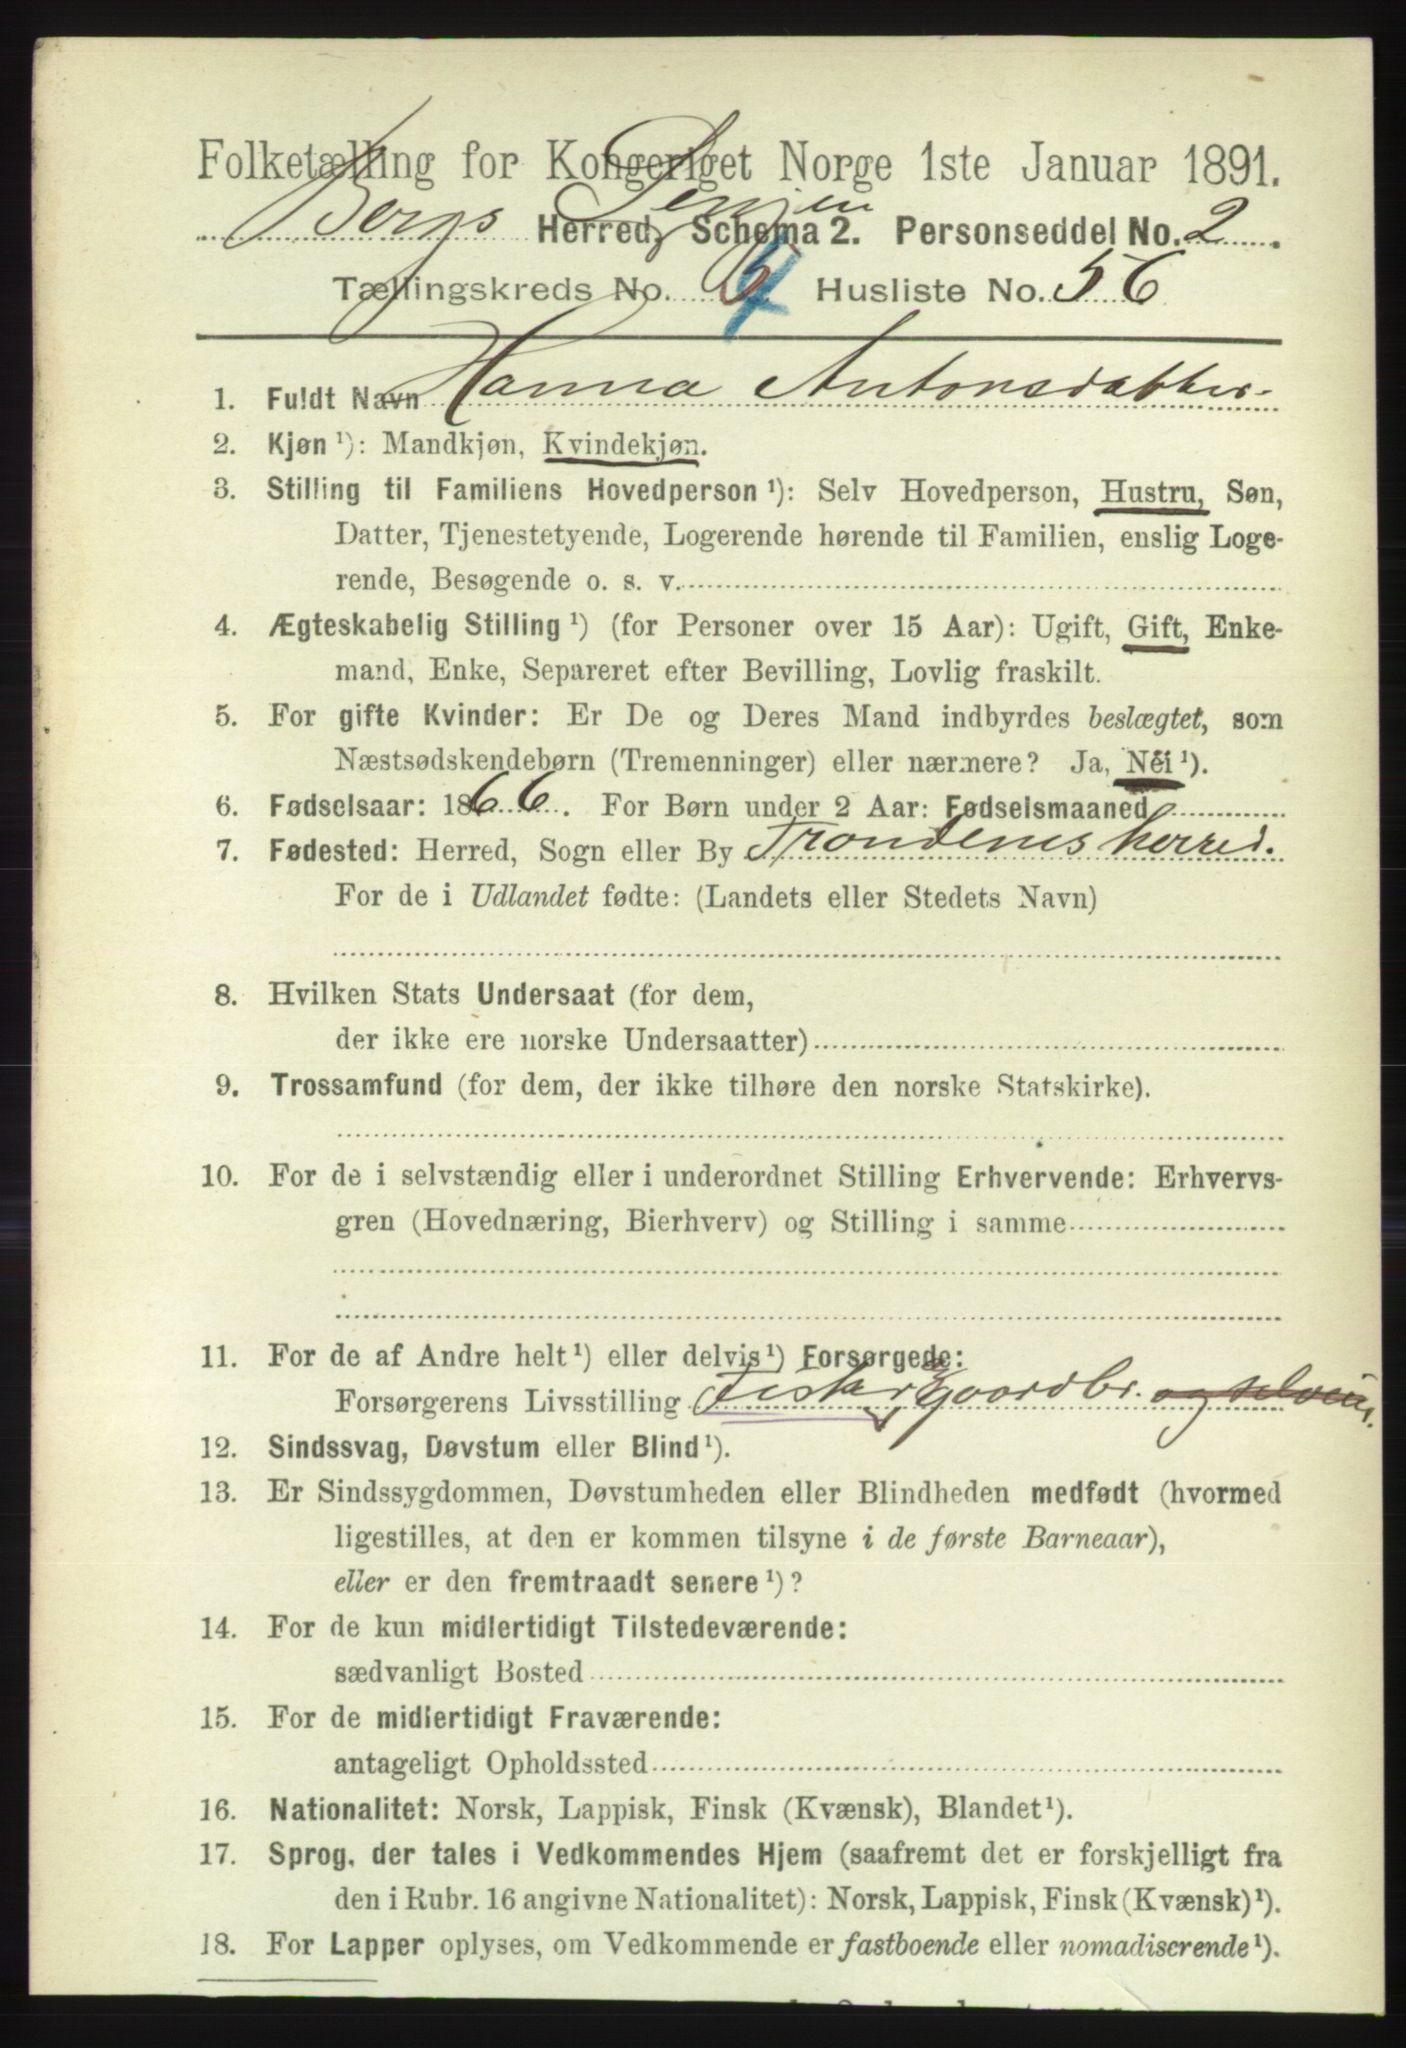 Folketælling for Kongeriget Norge 1ste Januar 1891.
Bergs Herred, Senjen Schema 2. Personseddel No. 2.
Tællingskreds No. 4 Husliste No. 56
1. Fuldt Navn Hanna Antonsdatter.
2. Kjøn ¹): Mandkjøn, Kvindekjøn.
3. Stilling til Familiens Hovedperson ¹): Selv Hovedperson, Hustru, Søn,
Datter, Tjenestetyende, Logerende hørende til Familien, enslig Loge-
rende, Besøgende o. s. v.
4. Ægteskabelig Stilling ¹) (for Personer over 15 Aar): Ugift, Gift, Enke-
mand, Enke, Separeret efter Bevilling, Lovlig fraskilt.
5. For gifte Kvinder: Er De og Deres Mand indbyrdes beslægtet, som
Næstsødskendebørn (Tremenninger) eller nærmere? Ja, Nei ¹).
6. Fødselsaar: 1866. For Børn under 2 Aar: Fødselsmaaned
7. Fødested: Herred, Sogn eller By Trondenes herred.
For de i Udlandet fødte: (Landets eller Stedets Navn)
8. Hvilken Stats Undersaat (for dem,
der ikke ere norske Undersaatter)
9. Trossamfund (for dem, der ikke tilhøre den norske Statskirke).
10. For de i selvstændig eller i underordnet Stilling Erhvervende: Erhvervs-
gren (Hovednæring, Bierhverv) og Stilling i samme
11. For de af Andre helt ¹) eller delvis ¹) Forsørgede:
Forsørgerens Livsstilling Fisker, Gaardbr. og selveier.
12. Sindssvag, Døvstum eller Blind ¹).
13. Er Sindssygdommen, Døvstumheden eller Blindheden medfødt (hvormed
ligestilles, at den er kommen tilsyne i de første Barneaar),
eller er den fremtraadt senere ¹)?
14. For de kun midlertidigt Tilstedeværende:
sædvanligt Bosted
15. For de midlertidigt Fraværende:
antageligt Opholdssted
16. Nationalitet: Norsk, Lappisk, Finsk (Kvænsk), Blandet ¹).
17. Sprog, der tales i Vedkommendes Hjem (saafremt det er forskjelligt fra
den i Rubr. 16 angivne Nationalitet): Norsk, Lappisk, Finsk (Kvænsk) ¹).
18. For Lapper oplyses, om Vedkommende er fastboende eller nomadiserende ¹).